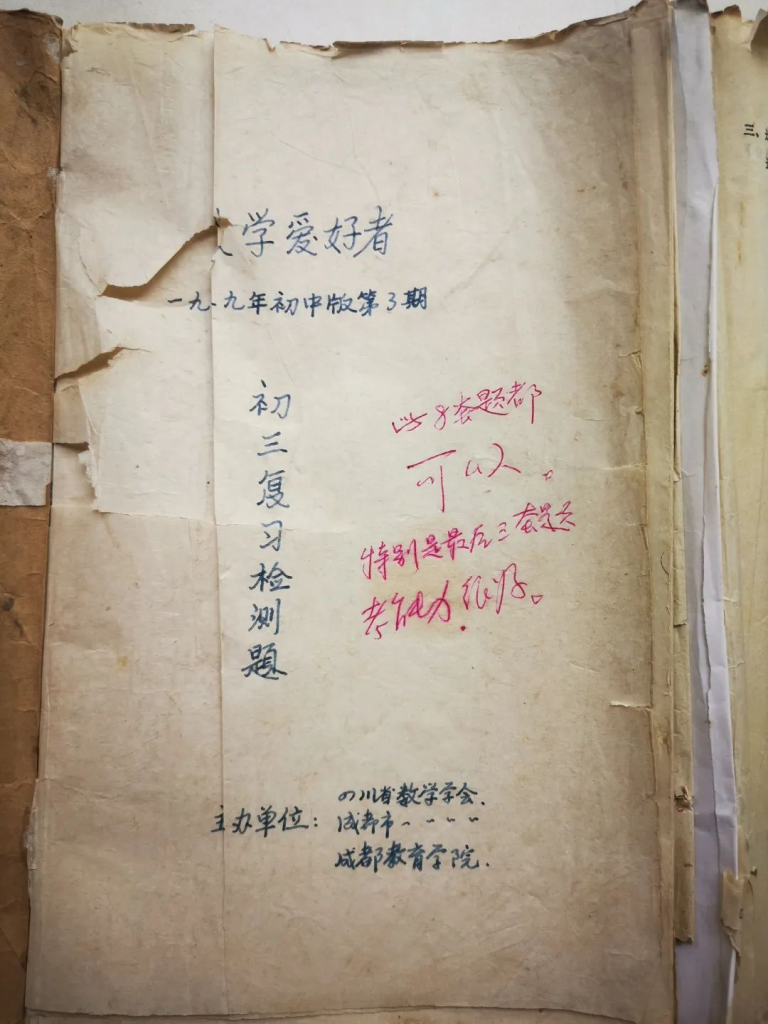 学爱好者
一九 九年初中版第3期
初三复习检测题
此8套题都
可以。
特别是最后三套题
考能力很好。
主办单位：
四川省数学学会.
成都市 〃 〃 〃 〃
成都教育学院.
三、